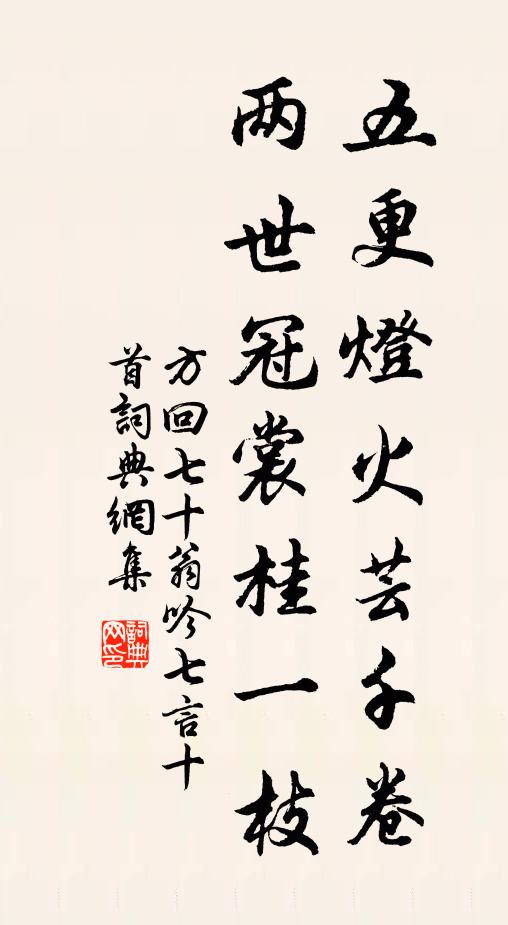 五更燈火芸千卷
两世冠裳桂一枝
方回七十翁吟七言十
首詞典網集
詞典网印